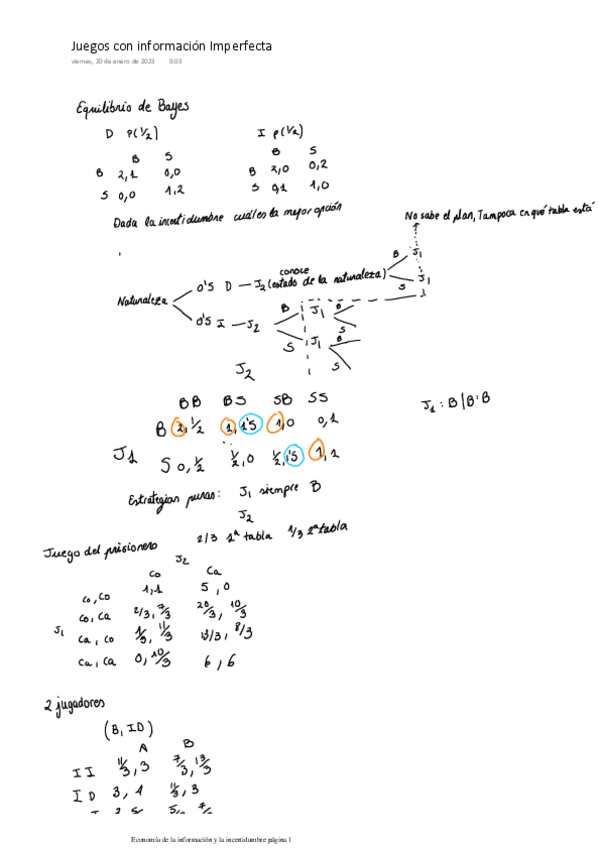 Juegos con información Imperfecta
viernes, 20 de enero de 2023 0:03
Equilibrio de Bayes
D P(1/2) I P(1/2)
B S B S
B 2,1 0,0 B 2,0 0,2
S 0,0 1,2 S 0,1 1,0
Dada la incertidumbre cuál es la mejor opción
No sabe el plan, Tampoca en qué tabla está
conoce
B J1
0'5 D — J2 (estado de la naturaleza)
S J1
Naturaleza
B J1 B
0'5 I — J2
S
S J1 B
S
J2
BB BS SB SS
J1 : B | B'B
B 2,1/2 1,1'5 1,0 0,1
J1
S 0,1/2 1/2,0 1/2,1'5 1,1
Estrategias puras: J1 siempre B
J2
2/3 1ª tabla 1/3 2ª tabla
Juego del prisionero
J2
Co Ca
Co, Co 1,1 5,0
Co, Ca 2/3, 7/3 20/3, 10/3
J1
Ca, Co 1/3, 11/3 13/3, 8/3
Ca, Ca 0, 10/3 6, 6
2 jugadores
(B, ID)
A B
I I 11/3, 3 7/3, 13/3
I D 3, 4 11/3, 3
Economía de la información y la incertidumbre página 1